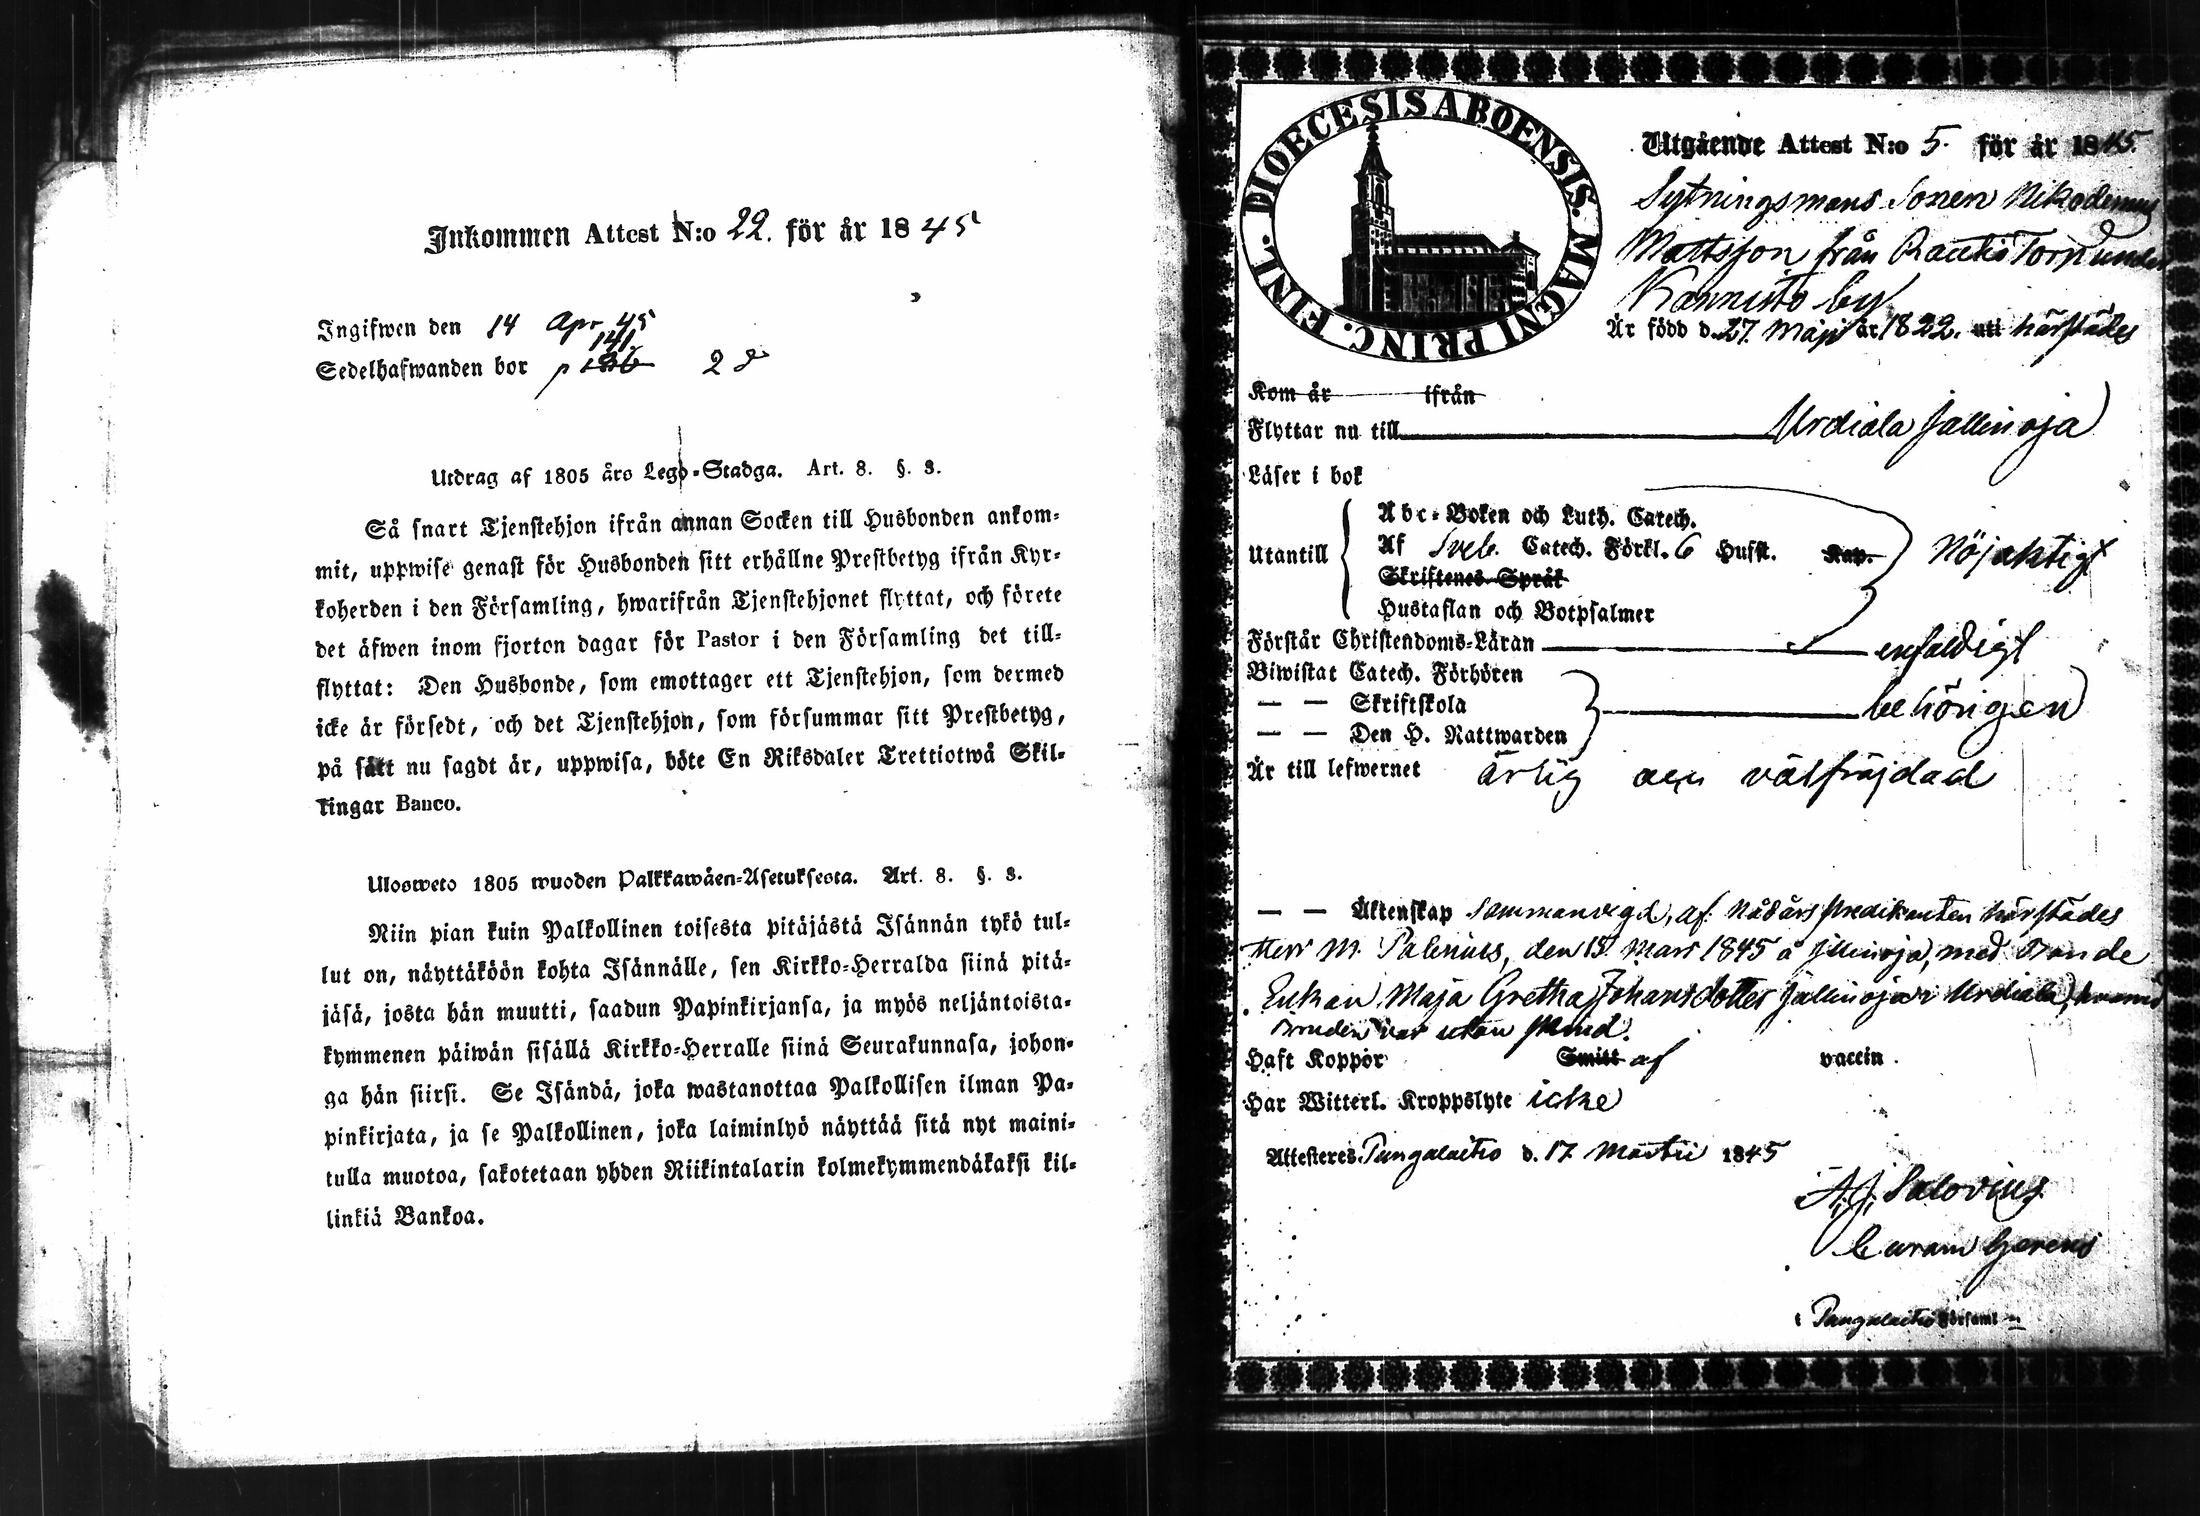 Inkommen Attest N:o 22. för år 1845
Ingifwen den 14 Apr 45
141
Sedelhafwanden bor p 2 d
Utdrag af 1805 års Lego-Stadga. Art. 8. §. 3.
Så snart Tjenstehjon ifrån annan Socken till Husbonden ankom-
mit, uppwise genast för Husbonden sitt erhållne Prestbetyg ifrån Kyr-
koherden i den Församling, hwarifrån Tjenstehjonet flyttat, och förete
det äfwen inom fjorton dagar för Pastor i den Församling det till-
flyttat: Den Husbonde, som emottager ett Tjenstehjon, som dermed
icke är försedt, och det Tjenstehjon, som försummar sitt Prestbetyg,
på sätt nu sagdt är, uppwisa, böte En Riksdaler Trettiotwå Skil-
lingar Banco.
Ulosweto 1805 wuoden Palkkawäen-Asetuksesta. Art. 8. §. 3.
Niin pian kuin Palkollinen toisesta pitäjästä Isännän tykö tul-
lut on, näyttäköön kohta Isännälle, sen Kirkko-Herralda siinä pitä-
jäsä, josta hän muutti, saadun Papinkirjansa, ja myös neljäntoista-
kymmenen päiwän sisällä Kirkko-Herralle siinä Seurakunnasa, johon-
ga hän siirsi. Se Isändä, joka wastanottaa Palkollisen ilman Pa-
pinkirjata, ja se Palkollinen, joka laiminlyö näyttää sitä nyt maini-
tulla muotoa, sakotetaan yhden Riikintalarin kolmekymmendäkaksi kil-
linkiä Bankoa.
DIOECESIS ABOENSIS. MAGNI PRINC. FINL.
Utgående Attest N:o 5. för år 1845.
Sytningsmans Sonen Nikodemus
Mattsson från Rautio Torp under
Kannisto by
Är född d. 27. Maji år 1822. uti härstädes
Kom år ifrån
Flyttar nu till Urdiala Jallinoja
Läser i bok
Utantill
Abc-Boken och Luth. Catech.
Af Sveb. Catech. Förkl. 6 Hufst. Kap. Nöjaktigt
Skriftenes Språk
Hustaflan och Botpsalmer
Förstår Christendoms-Läran enfaldigt
Biwistat Catech. Förhören
— — Skriftskola behörigen
— — Den H. Nattwarden
Är till lefwernet ärlig och välfräjdad
— — Äktenskap Sammanvigd, af Nådårs Predikanten härstädes
Herr M. Palenius, den 15 Mars 1845 å Jllinoja, med Bonde
Enkan Maja Gretha Johansdotter Jallinoja i Urdiala,
Bruden var utan hind.
Haft Koppor Smitt af vaccin.
Har Witterl. Kroppslyte icke
Attesteres Pungalaitio d. 17 Martii 1845
A. J. Salovius
Curam Gerens
i Pungalaitio Församl